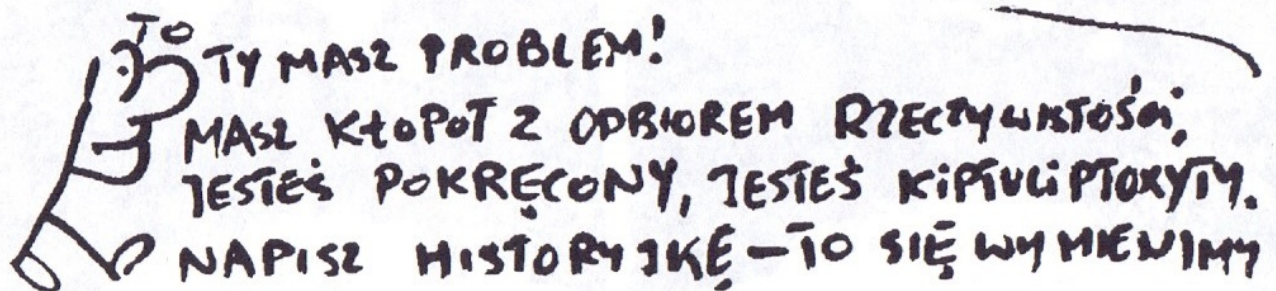 TO
TY MASZ PROBLEM!
MASZ KŁOPOT Z ODBIOREM RZECZYWISTOŚCI,
JESTEŚ POKRĘCONY, JESTEŚ KIPTULIPTOXYTY.
NAPISZ HISTORYJKĘ – TO SIĘ WYMIENIMY